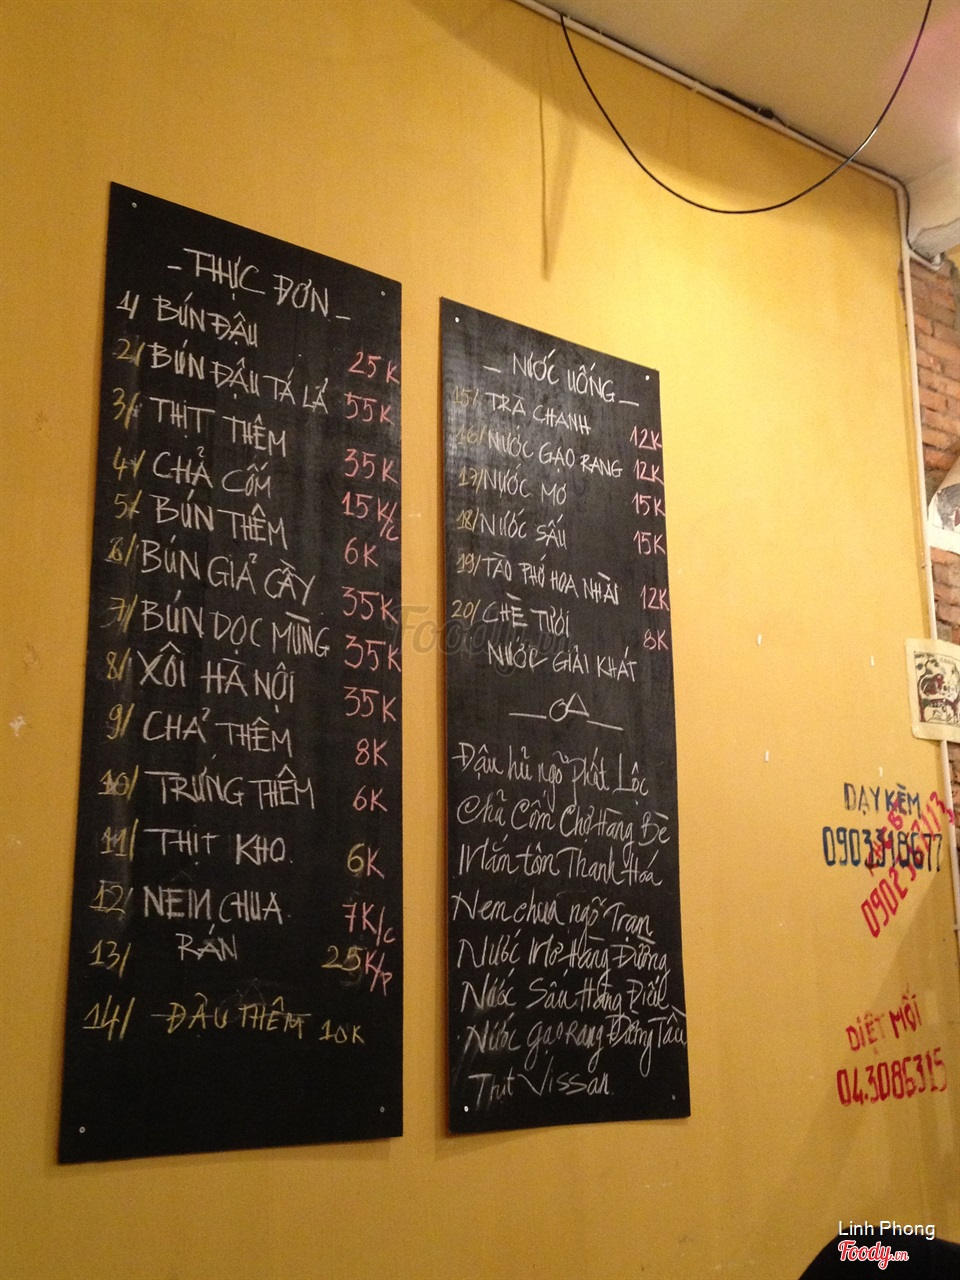 - THỰC ĐƠN -
1/ BÚN ĐẬU 25K
2/ BÚN ĐẬU TÁ LẢ 55K
3/ THỊT THÊM 35K
4/ CHẢ CỐM 15K/C
5/ BÚN THÊM 6K
6/ BÚN GIẢ CẦY 35K
7/ BÚN DỌC MÙNG 35K
8/ XÔI HÀ NỘI 35K
9/ CHẢ THÊM 8K
10/ TRỨNG THÊM 6K
11/ THỊT KHO 6K
12/ NEM CHUA 7K/C
13/ RÁN 25K/P
14/ ĐẬU THÊM 10K
- NƯỚC UỐNG -
15/ TRÀ CHANH 12K
16/ NƯỚC GẠO RANG 12K
17/ NƯỚC MƠ 15K
18/ NƯỚC SẤU 15K
19/ TÀO PHỚ HOA NHÀI 12K
20/ CHÈ TƯƠI 8K
NƯỚC GIẢI KHÁT
Đậu hủ ngõ Phất Lộc
Chả Cốm Chợ Hàng Bè
Mắn tôn Thanh Hoá
Nem chua ngõ Tram
Nước Mơ Hàng Đường
Nước Sấu Hàng Điếu
Nước gạo rang Đường Tàu
Thịt Vissan
DẠY KÈM
0903318677
DIỆT MỐI
04.3086315
Foody.vn
Linh Phong
Foody.vn